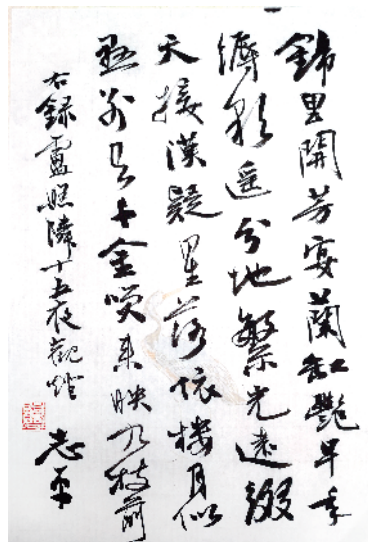 錦里開芳宴蘭缸艷早年
縟彩遥分地繁光遠綴
天接漢疑星落依樓月似
懸別有千金咲来映九枝前
右録盧照隣十五夜觀燈
志平